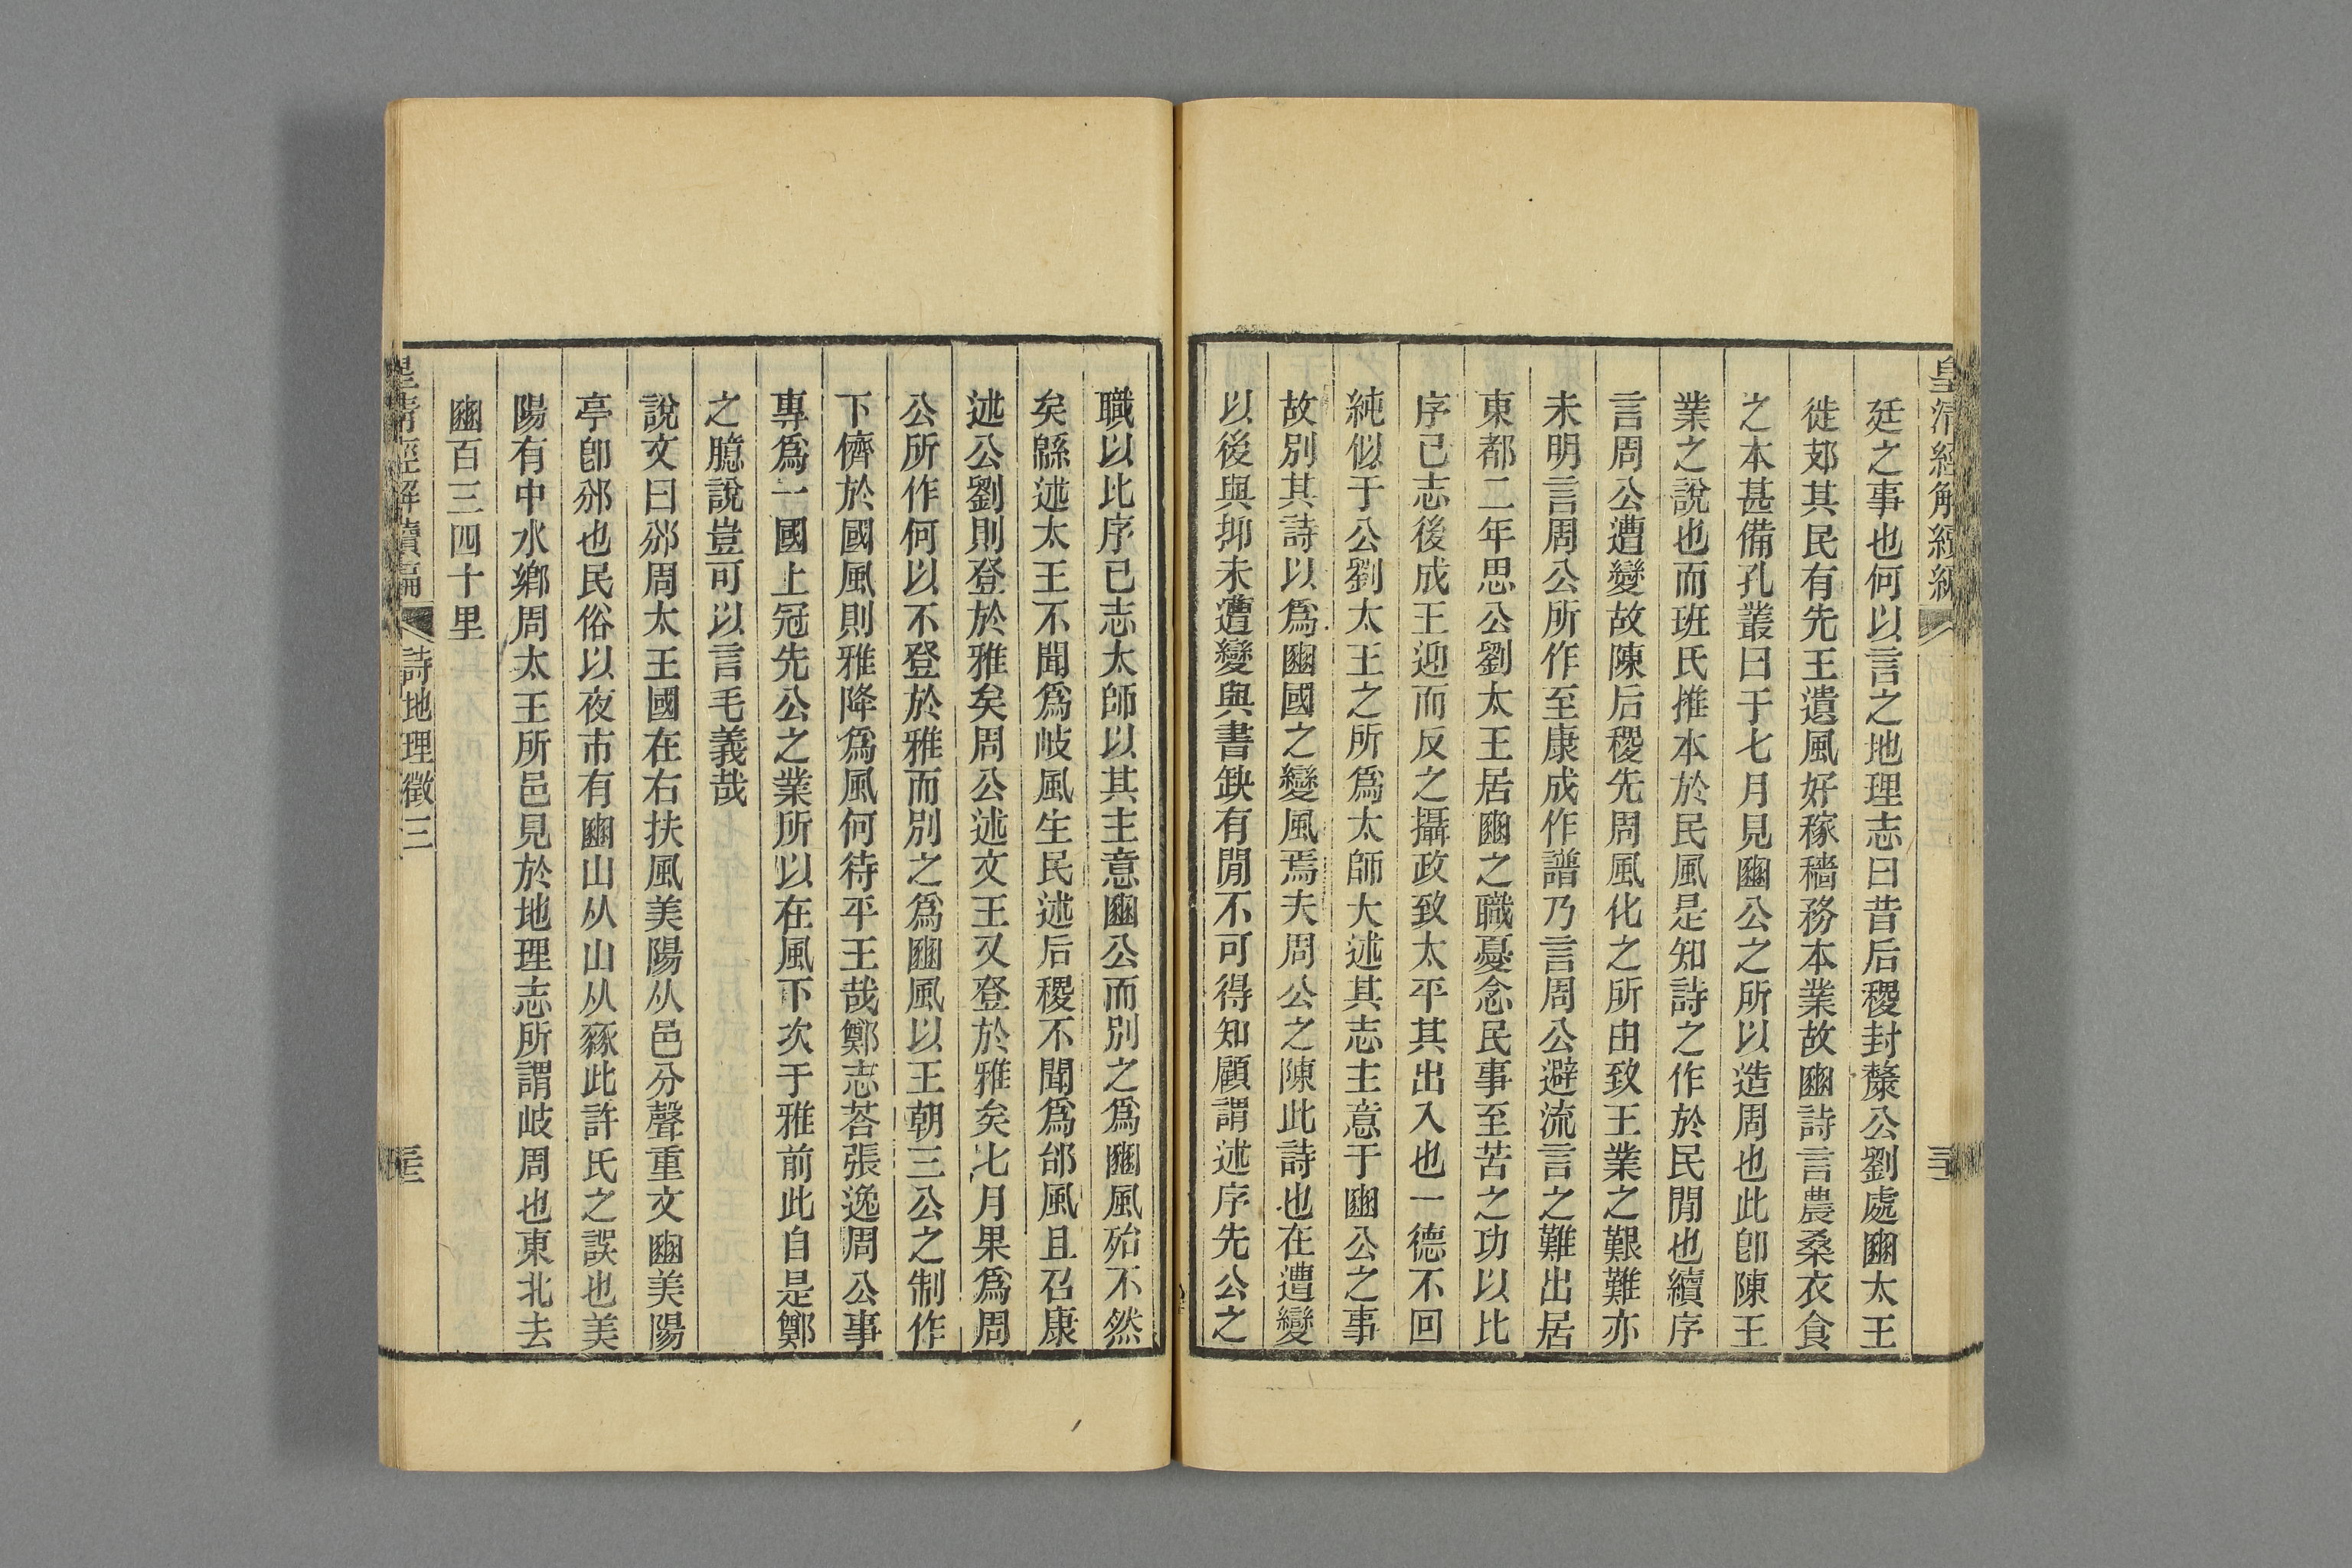 皇清經解續編
廷之事也何以言之地理志曰昔后稷封斄公劉處豳太王
徙郊其民有先王遺風好稼穡務本業故豳詩言農桑衣食
之本甚備孔叢曰于七月見豳公之所以造周也此卽陳王
業之說也而班氏推本於民風是知詩之作於民閒也續序
言周公遭變故陳后稷先周風化之所由致王業之艱難亦
未明言周公所作至康成作譜乃言周公避流言之難出居
東都二年思公劉太王居豳之職憂念民事至苦之功以比
序已志後成王迎而反之攝政致太平其出入也一德不回
純似于公劉太王之所爲太師大述其志主意于豳公之事
故別其詩以爲豳國之變風焉夫周公之陳此詩也在遭變
以後與抑未遭變與書缺有閒不可得知顧謂述序先公之
職以比序已志太師以其主意豳公而別之爲豳風殆不然
矣緜述太王不聞爲岐風生民述后稷不聞爲邰風且召康
述公劉則登於雅矣周公述文王又登於雅矣七月果爲周
公所作何以不登於雅而別之爲豳風以王朝三公之制作
下儕於國風則雅降爲風何待平王哉鄭志荅張逸周公事
專爲一國上冠先公之業所以在風下次于雅前此自是鄭
之臆說豈可以言毛義哉
說文曰邠周太王國在右扶風美陽从邑分聲重文豳美陽
亭卽邠也民俗以夜市有豳山从山从豩此許氏之誤也美
陽有中水鄉周太王所邑見於地理志所謂岐周也東北去
豳百三四十里
皇清經解續編
詩地理徵三